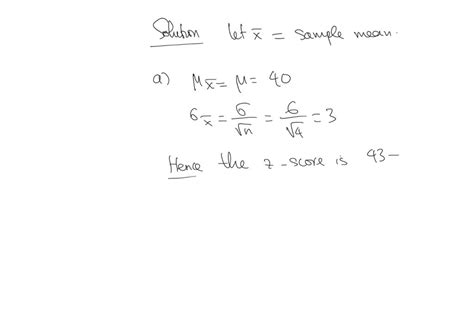 Solution let x̄ = sample mean.
a) μx̄ = μ = 40
σx̄ = σ/√n = 6/√4 = 3
Hence the z-score is 43 –